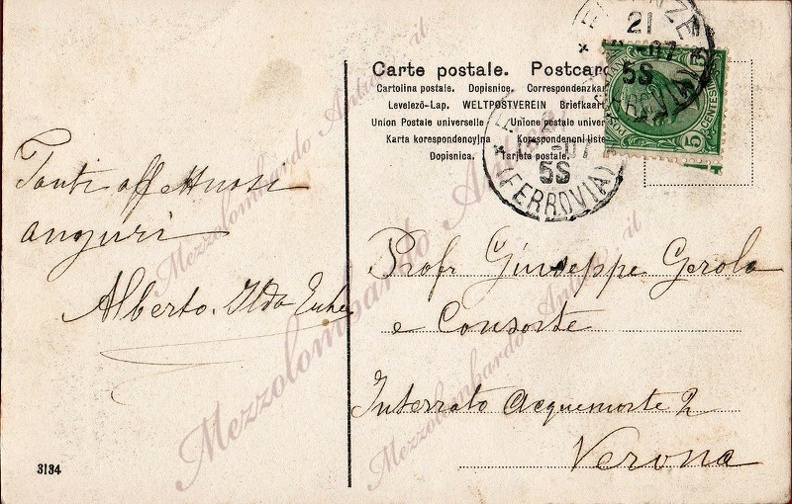 Carte postale. Postcard
Cartolina postale. Dopisnice. Correspondenzkar
Levelező-Lap. WELTPOSTVEREIN Briefkaart
Union Postale universelle Unione postale univer
Karta korespondencyjna Korespondenzni listek
Dopisnica. Tarjeta postale.
21
07
5S
(FERROVIA)
5S
(FERROVIA)
CENTESIMI
5
Tanti affettuosi
auguri
Alberto, Ilda
Profr Giuseppe Gerola
e Consorte
Interrato Acquemorte 2
Verona
3134
Mezzolombardo Antiqua.it
Mezzolombardo Antiqua.it